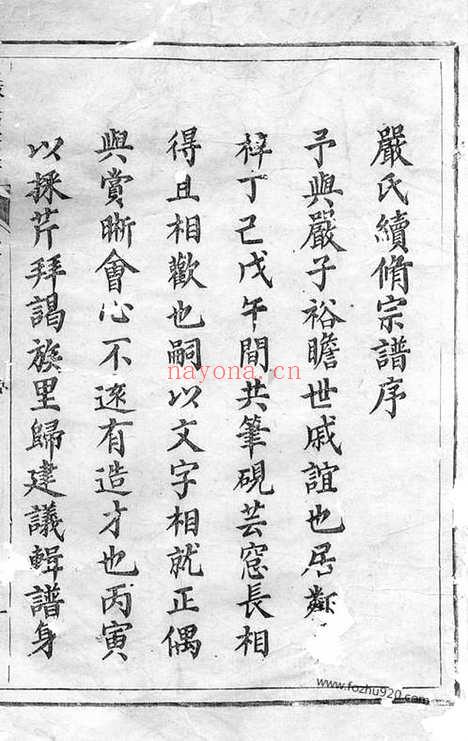 嚴氏續脩宗譜序
予與嚴子裕瞻世戚誼也居鄰
梓丁己戊午間共筆硯芸窓長相
得且相歡也嗣以文字相就正偶
與賞晣會心不遠有造才也丙寅
以採芹拜謁族里歸建議輯譜身
nayona.cn
www.fozhu920.com